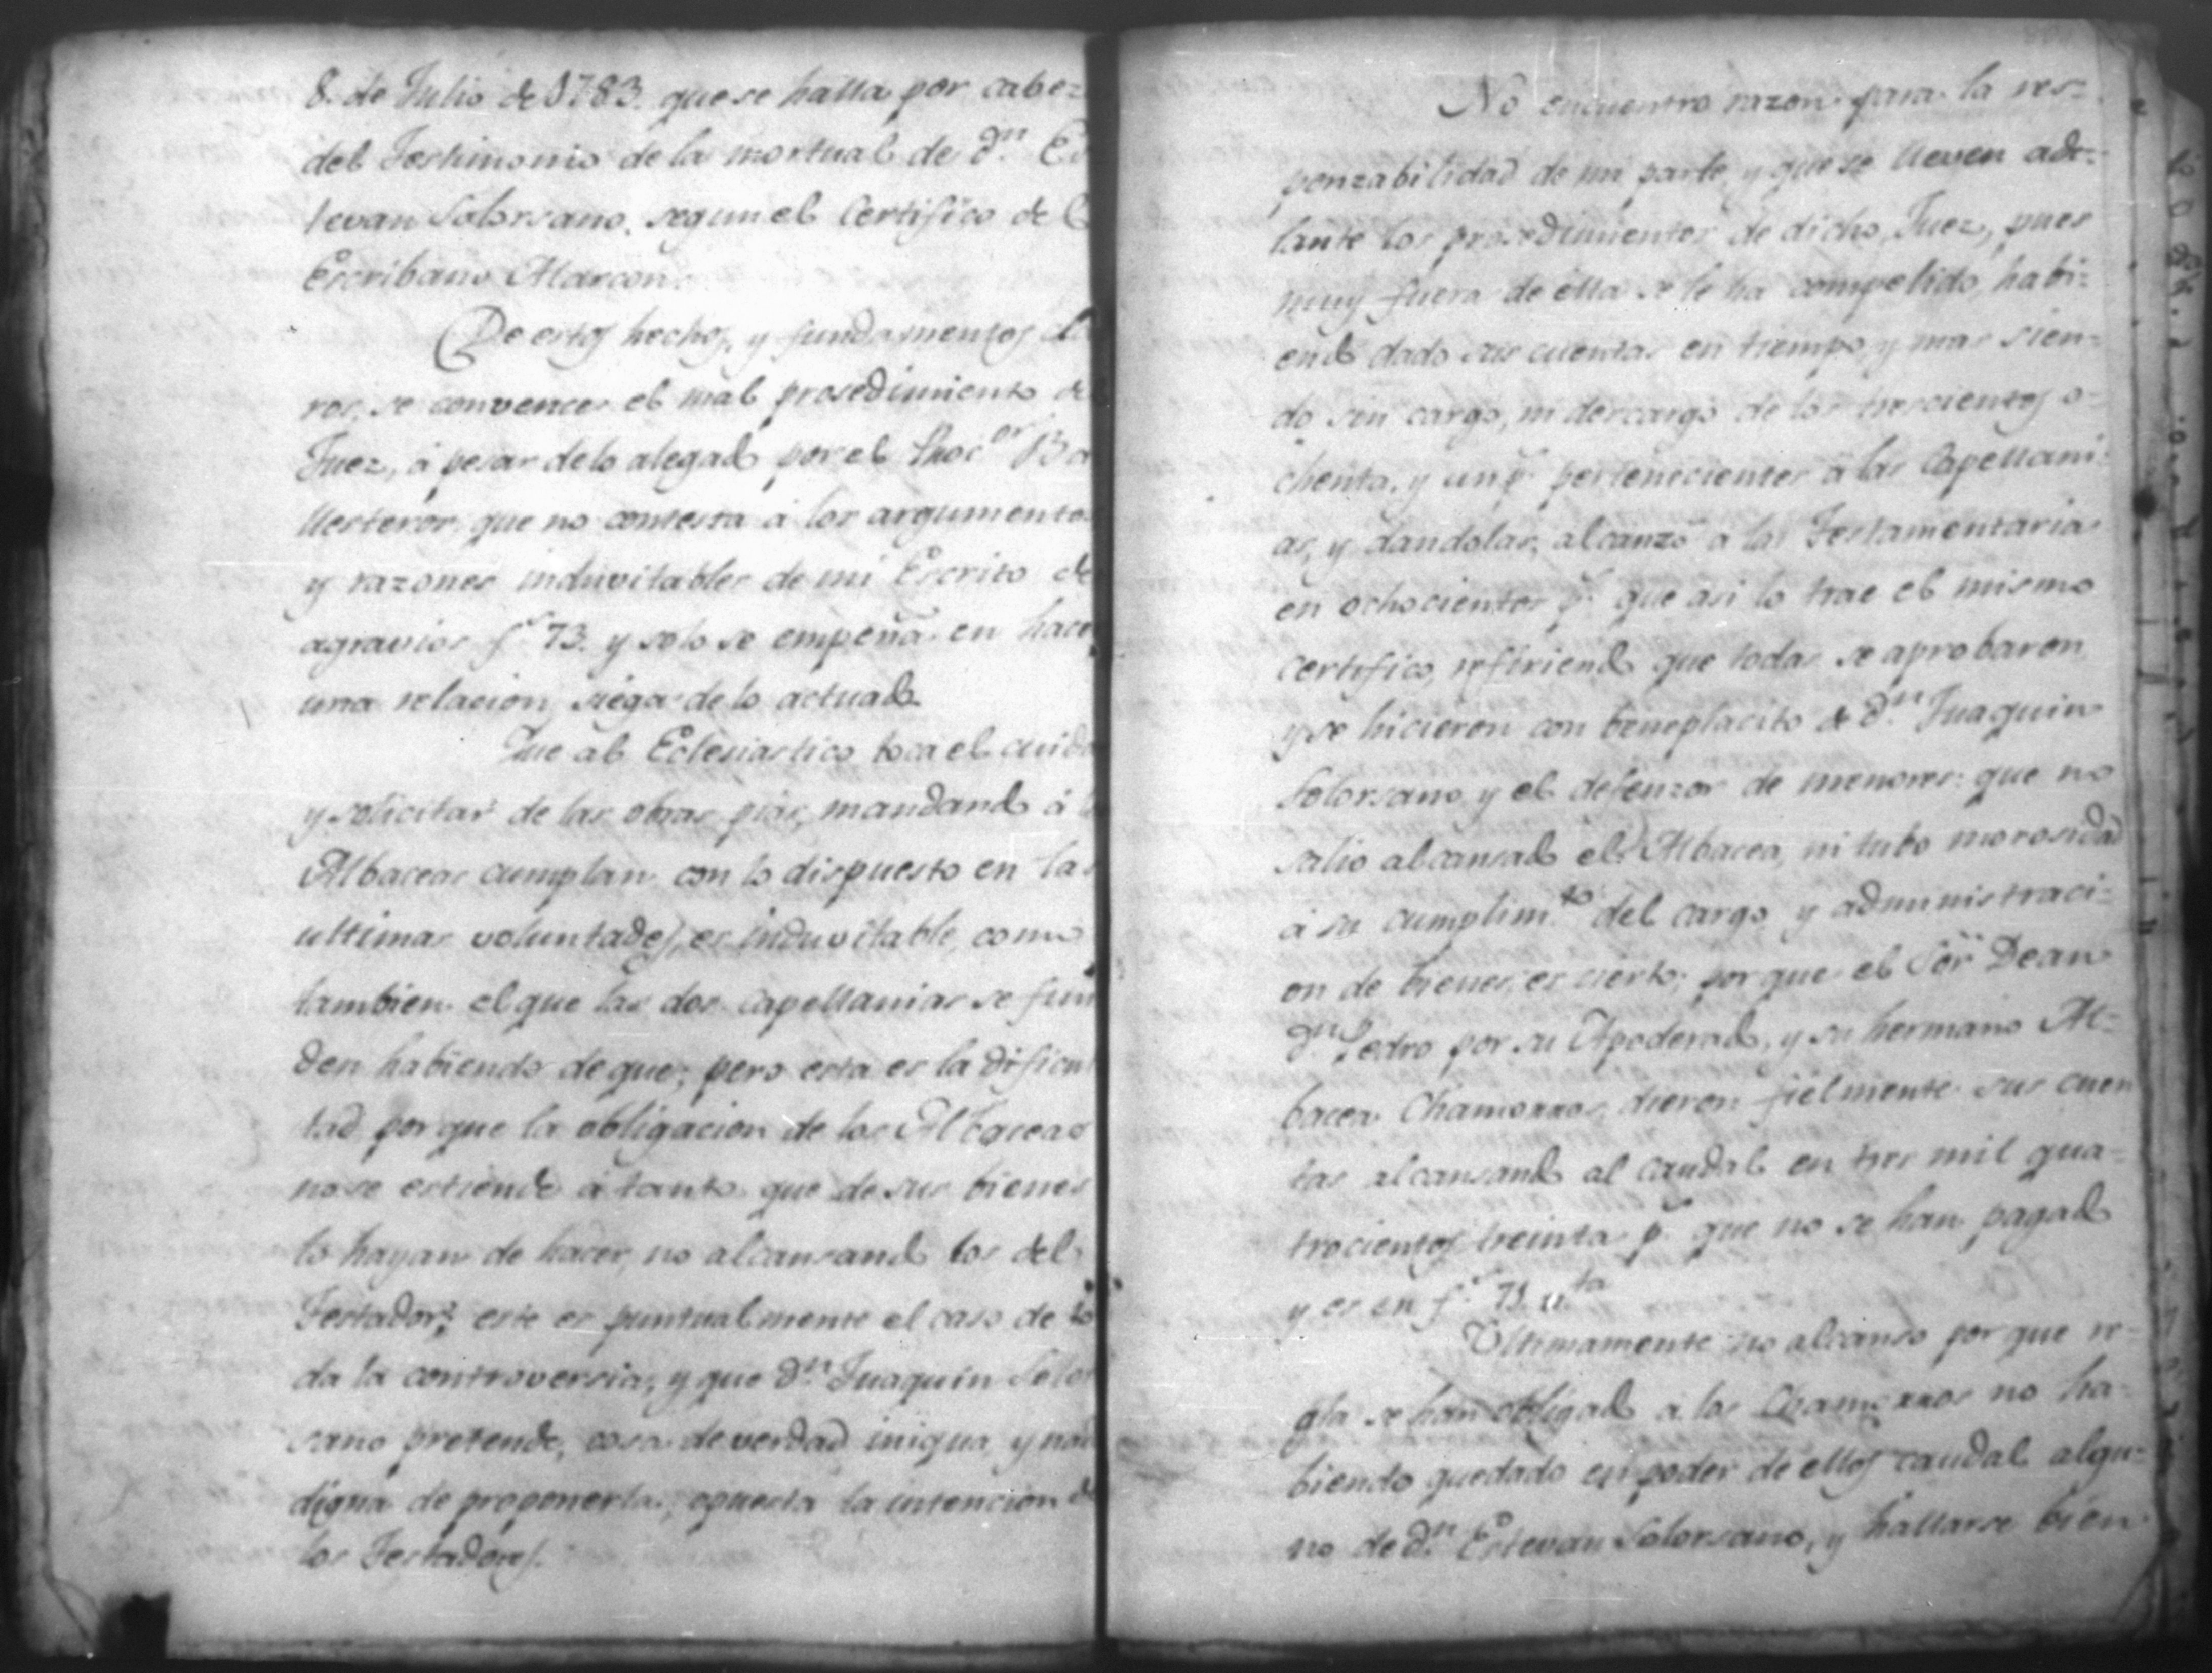 8. de Julio de 1783. que se halla por cabez
del Testimonio de la mortual de d.n Es
tevan Solorsano, segun el Certifico de l
Escribano Alarcon.
De estos hechos, y fundamentos cla
ros, se convence el mal prosedimiento de
Juez, á pesar de lo alegado por el Proc.or Ba
llesteros, que no contesta á los argumentos
y razones induvitables de mi Escrito de
agravios f.s 73. y solo se empeña en hacer
una relacion siega de lo actuado.
Que al Eclesiastico toca el cuida
y solicitar de las obras pias, mandando á l
Albaceas cumplan con lo dispuesto en las
ultimas voluntades, es induvitable, como
tambien el que las dos capellanias se fun
den habiendo de que; pero esta es la dificul
tad porque la obligacion de los Albaceas
no se estiende á tanto que de sus bienes
lo hayan de hacer, no alcansando los del
Testador: este es puntualmente el caso de to
da la controversia, y que d.n Juaquin Solor
sano pretende, cosa de verdad iniqua, y nad
digna de proponerla, opuesta la intencion de
los Testadores.
No encuentro razon para la res=
ponzabilidad de mi parte, y que se lleven ade=
lante los prosedimientos de dicho Juez, pues
muy fuera de ella se le ha compelido, habi=
endo dado sus cuentas en tiempo, y mas sien=
do sin cargo, ni descargo de los trescientos o=
chenta, y un p.s pertenecientes á las Capellani=
as, y dandolas, alcanzó a las Testamentarias
en ochocientos p.s que asi lo trae el mismo
certifico, refiriendo que todas se aprobaron
y se hicieron con beneplacito de d.n Juaquin
Solorsano y el defenzor de menores: que no
salio alcansado el Albacea, ni tubo morosidad
á su cumplim.to del cargo y administraci=
on de bienes, es cierto; porque el Sor. Dean
d.n Pedro por su Apoderado, y su hermano Al=
bacea Chamorros, dieron fielmente sus cuen
tas alcansando al caudal en tres mil qua=
trocientos treinta p.s que no se han pagado
y es en f.s 71. v.ta
Ultimamente no alcanso por que re=
gla se han obligado a los Chamorros no ha=
biendo quedado en poder de ellos caudal algu=
no de d.n Estevan Solorsano, y hallarse bien